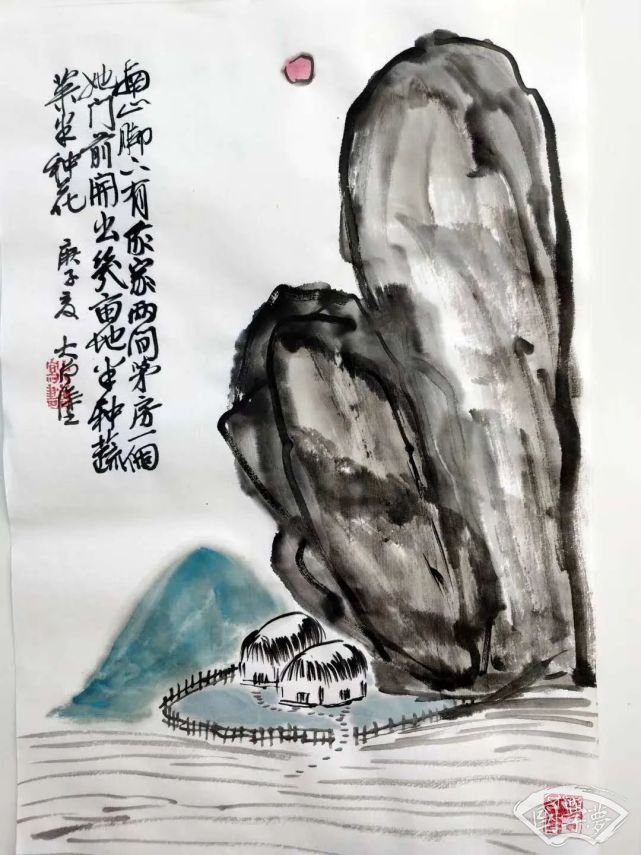 南山脚下有我家两间茅房一個
她门前開出幾亩地半种蔬
菜半种花 庚子夏 大